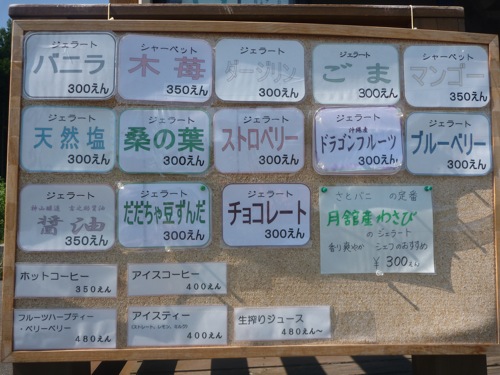 ジェラート
バニラ
300えん
シャーベット
木苺
350えん
ジェラート
ダージリン
300えん
ジェラート
ごま
300えん
シャーベット
マンゴー
350えん
ジェラート
天然塩
300えん
ジェラート
桑の葉
300えん
ジェラート
ストロベリー
300えん
沖縄産
ドラゴンフルーツ
300えん
ジェラート
ブルーベリー
300えん
ジェラート
醤油
350えん
ジェラート
だだちゃ豆ずんだ
300えん
ジェラート
チョコレート
300えん
さとバニ の定番
月舘産わさび
のジェラート
香り爽やか シェフのおすすめ
¥300えん
ホットコーヒー
350えん
アイスコーヒー
400えん
フルーツハーブティー
・ベリーベリー
480えん
アイスティー
(ストレート、レモン、ミルク)
400えん
生搾りジュース
480えん~